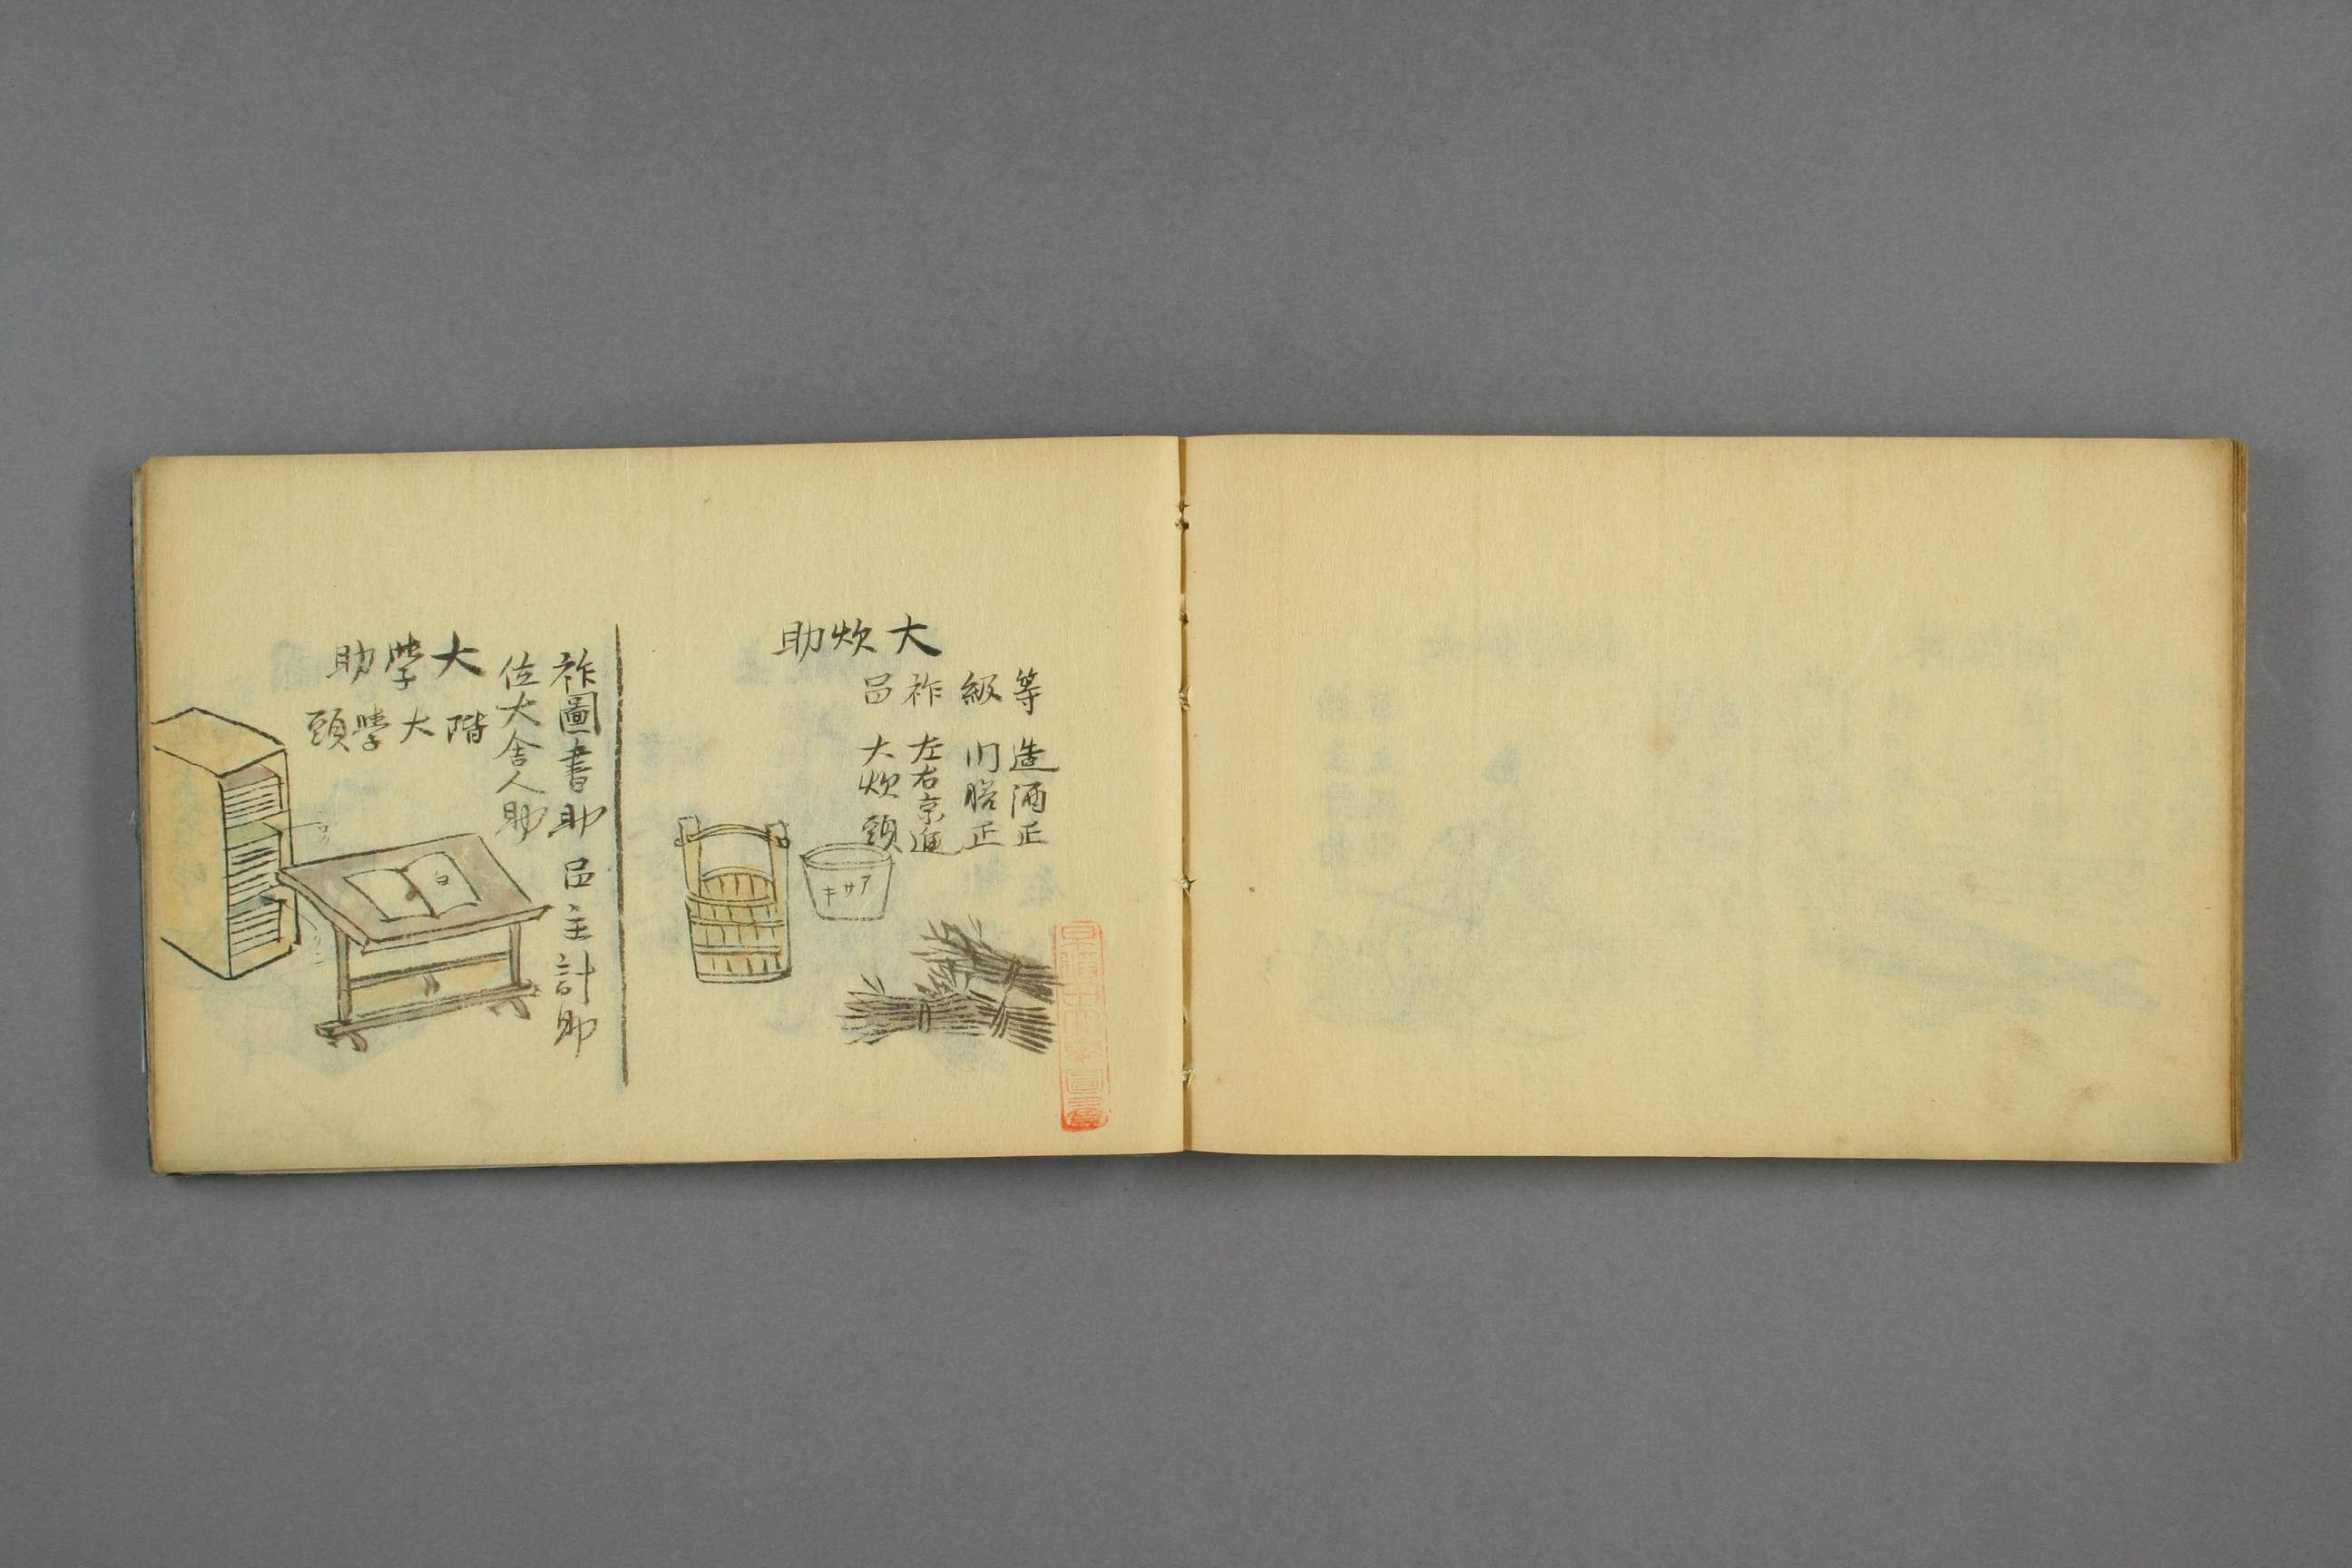 大炊助
等 造酒正
級 内膳正
祚 左右京進
品 大炊頭
アサキ
祚圖書助 品主計助
位大舎人助
大學助
階大學頭